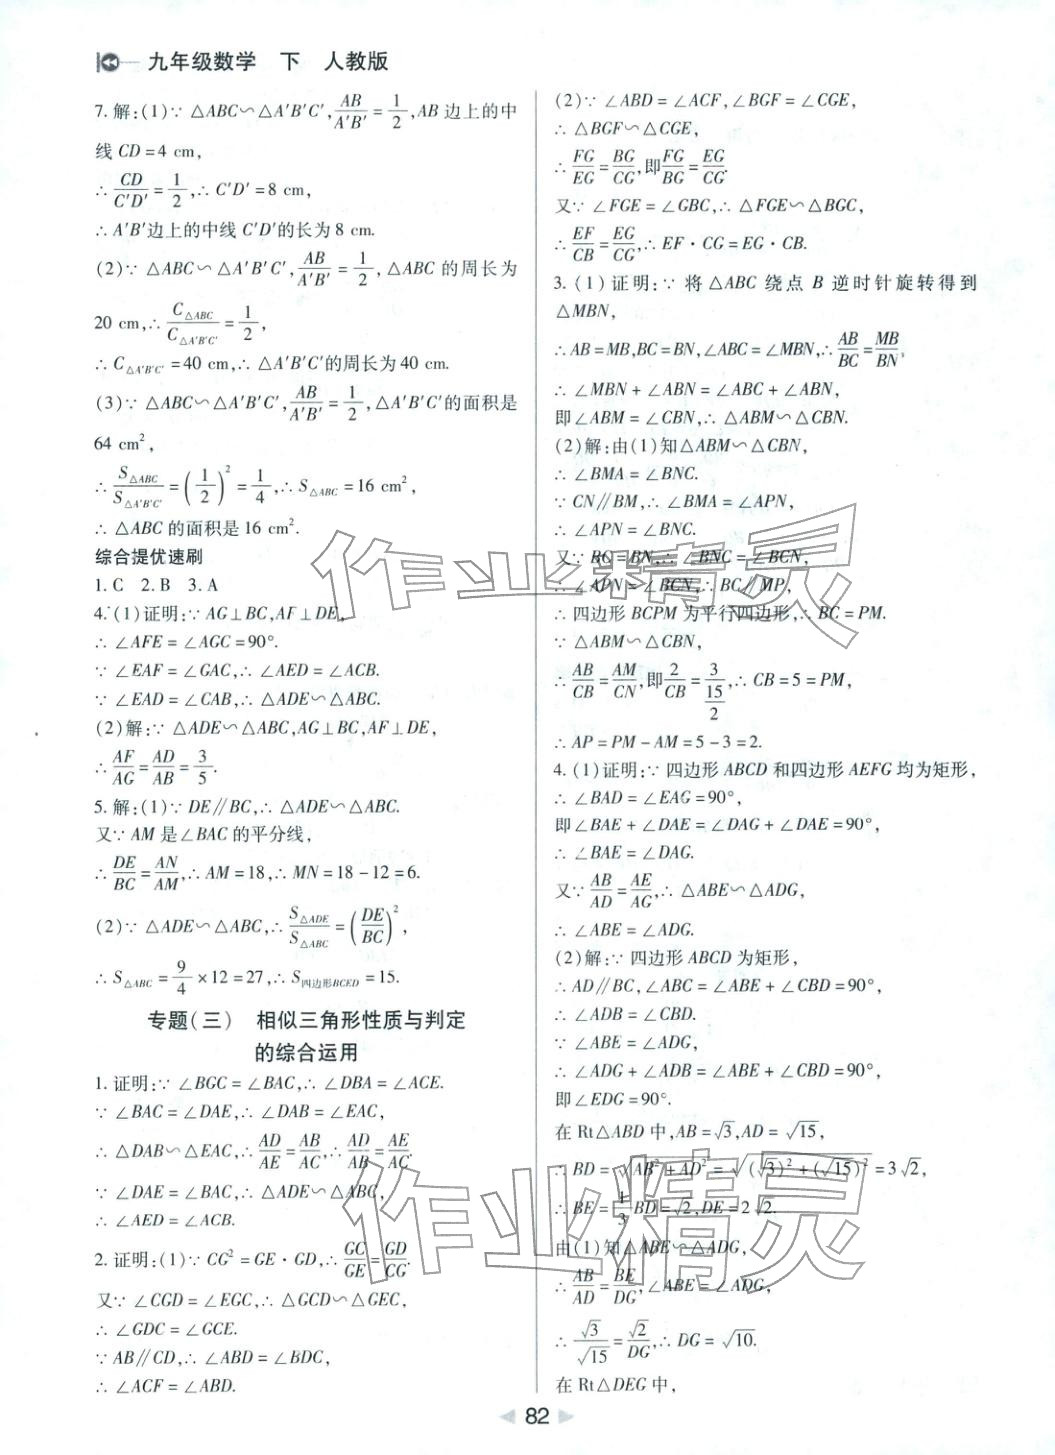 九年级数学 下 人教版
7. 解:(1)∵ △ABC∽△A′B′C′,AB/A′B′=1/2,AB 边上的中
线 CD=4 cm,
∴ CD/C′D′=1/2,∴ C′D′=8 cm,
∴ A′B′边上的中线 C′D′的长为 8 cm.
(2)∵ △ABC∽△A′B′C′,AB/A′B′=1/2,△ABC 的周长为
20 cm,∴ C△ABC/C△A′B′C′=1/2,
∴ C△A′B′C′=40 cm,∴ △A′B′C′的周长为 40 cm.
(3)∵ △ABC∽△A′B′C′,AB/A′B′=1/2,△A′B′C′的面积是
64 cm²,
∴ S△ABC/S△A′B′C′=(1/2)²=1/4,∴ S△ABC=16 cm²,
∴ △ABC 的面积是 16 cm².
综合提优速刷
1. C 2. B 3. A
4. (1)证明:∵ AG⊥BC,AF⊥DE,
∴ ∠AFE=∠AGC=90°.
∵ ∠EAF=∠GAC,∴ ∠AED=∠ACB.
∵ ∠EAD=∠CAB,∴ △ADE∽△ABC.
(2)解:∵ △ADE∽△ABC,AG⊥BC,AF⊥DE,
∴ AF/AG=AD/AB=3/5.
5. 解:(1)∵ DE∥BC,∴ △ADE∽△ABC.
又∵ AM 是∠BAC 的平分线,
∴ DE/BC=AN/AM,∴ AM=18,∴ MN=18-12=6.
(2)∵ △ADE∽△ABC,∴ S△ADE/S△ABC=(DE/BC)²,
∴ S△ABC=9/4×12=27,∴ S四边形BCED=15.
专题(三) 相似三角形性质与判定
的综合运用
1. 证明:∵ ∠BGC=∠BAC,∴ ∠DBA=∠ACE.
∵ ∠BAC=∠DAE,∴ ∠DAB=∠EAC,
∴ △DAB∽△EAC,∴ AD/AE=AB/AC,∴ AD/AB=AE/AC.
∵ ∠DAE=∠BAC,∴ △DAE∽△BAC,
∴ ∠AED=∠ACB.
2. 证明:(1)∵ CG²=GE·GD,∴ GC/GE=GD/CG.
又∵ ∠CGD=∠EGC,∴ △GCD∽△GEC,
∴ ∠GDC=∠GCE.
∵ AB∥CD,∴ ∠ABD=∠BDC,
∴ ∠ACF=∠ABD.
(2)∵ ∠ABD=∠ACF,∠BGF=∠CGE,
∴ △BGF∽△CGE,
∴ FG/EG=BG/CG,即FG/BG=EG/CG.
又∵ ∠FGE=∠GBC,∴ △FGE∽△BGC,
∴ EF/CB=EG/CG,∴ EF·CG=EG·CB.
3. (1)证明:∵ 将△ABC 绕点 B 逆时针旋转得到
△MBN,
∴ AB=MB,BC=BN,∠ABC=∠MBN,∴ AB/BC=MB/BN,
∴ ∠MBN+∠ABN=∠ABC+∠ABN,
即∠ABM=∠CBN,∴ △ABM∽△CBN.
(2)解:由(1)知△ABM∽△CBN,
∴ ∠BMA=∠BNC.
∵ CN∥BM,∴ ∠BMA=∠APN,
∴ ∠APN=∠BNC.
又∵ BC=BN,∴ ∠BNC=∠BCN,
∴ ∠APN=∠BCN,∴ BC∥MP,
∴ 四边形 BCPM 为平行四边形,∴ BC=PM.
∵ △ABM∽△CBN,
∴ AB/CB=AM/CN,即2/CB=3/(15/2),∴ CB=5=PM,
∴ AP=PM-AM=5-3=2.
4. (1)证明:∵ 四边形 ABCD 和四边形 AEFG 均为矩形,
∴ ∠BAD=∠EAG=90°,
即∠BAE+∠DAE=∠DAG+∠DAE=90°,
∴ ∠BAE=∠DAG.
又∵ AB/AD=AE/AG,∴ △ABE∽△ADG,
∴ ∠ABE=∠ADG.
(2)解:∵ 四边形 ABCD 为矩形,
∴ AD∥BC,∠ABC=∠ABE+∠CBD=90°,
∴ ∠ADB=∠CBD.
∵ ∠ABE=∠ADG,
∴ ∠ADG+∠ADB=∠ABE+∠CBD=90°,
即∠EDG=90°.
在 Rt△ABD 中,AB=√3,AD=√15,
∴ BD=√(AB²+AD²)=√((√3)²+(√15)²)=3√2,
∴ BE=1/3 BD=√2,DE=2√2.
由(1)知△ABE∽△ADG,
∴ AB/AD=BE/DG,∠ABE=∠ADG,
∴ √3/√15=√2/DG,∴ DG=√10.
在 Rt△DEG 中,
82
作业精灵
作业精灵